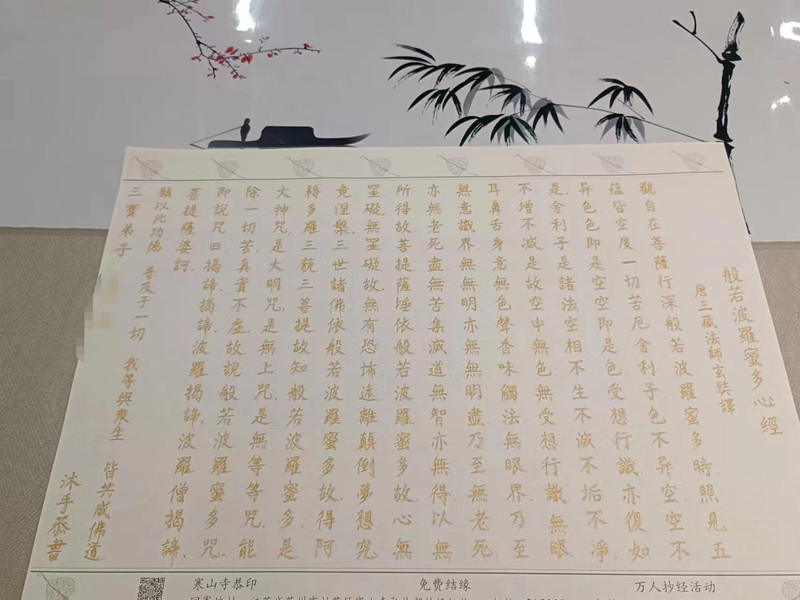 般若波羅蜜多心經
唐三藏法師玄奘譯
觀自在菩薩行深般若波羅蜜多時.照見五
蘊皆空度一切苦厄舍利子.色不异空.空不
异色色即是空空即是色受想行識亦復如
是.舍利子是諸法空相不生不滅不垢不淨.
不增不減是故空中無色無受想行識無眼
耳鼻舌身意無色聲香味觸法無眼界乃至
無意識界無無明亦無無明盡乃至無老死.
亦無老死盡無苦集滅道無智亦無得以無
所得故菩提薩埵依般若波羅蜜多故心無
罣礙無罣礙故無有恐怖遠離顛倒夢想究
竟涅槃.三世諸佛依般若波羅蜜多故.得阿
耨多羅三藐三菩提故知般若波羅蜜多.是
大神咒.是大明咒.是無上咒.是無等等咒.能
除一切苦.真實不虛故說般若波羅蜜多咒.
即說咒曰揭諦.揭諦.波羅揭諦.波羅僧揭諦.
菩提薩婆訶.
願以此功德 普及于一切 我等與衆生 皆共成佛道
三寶弟子 沐手恭書
寒山寺恭印 免費结缘 万人抄经活动